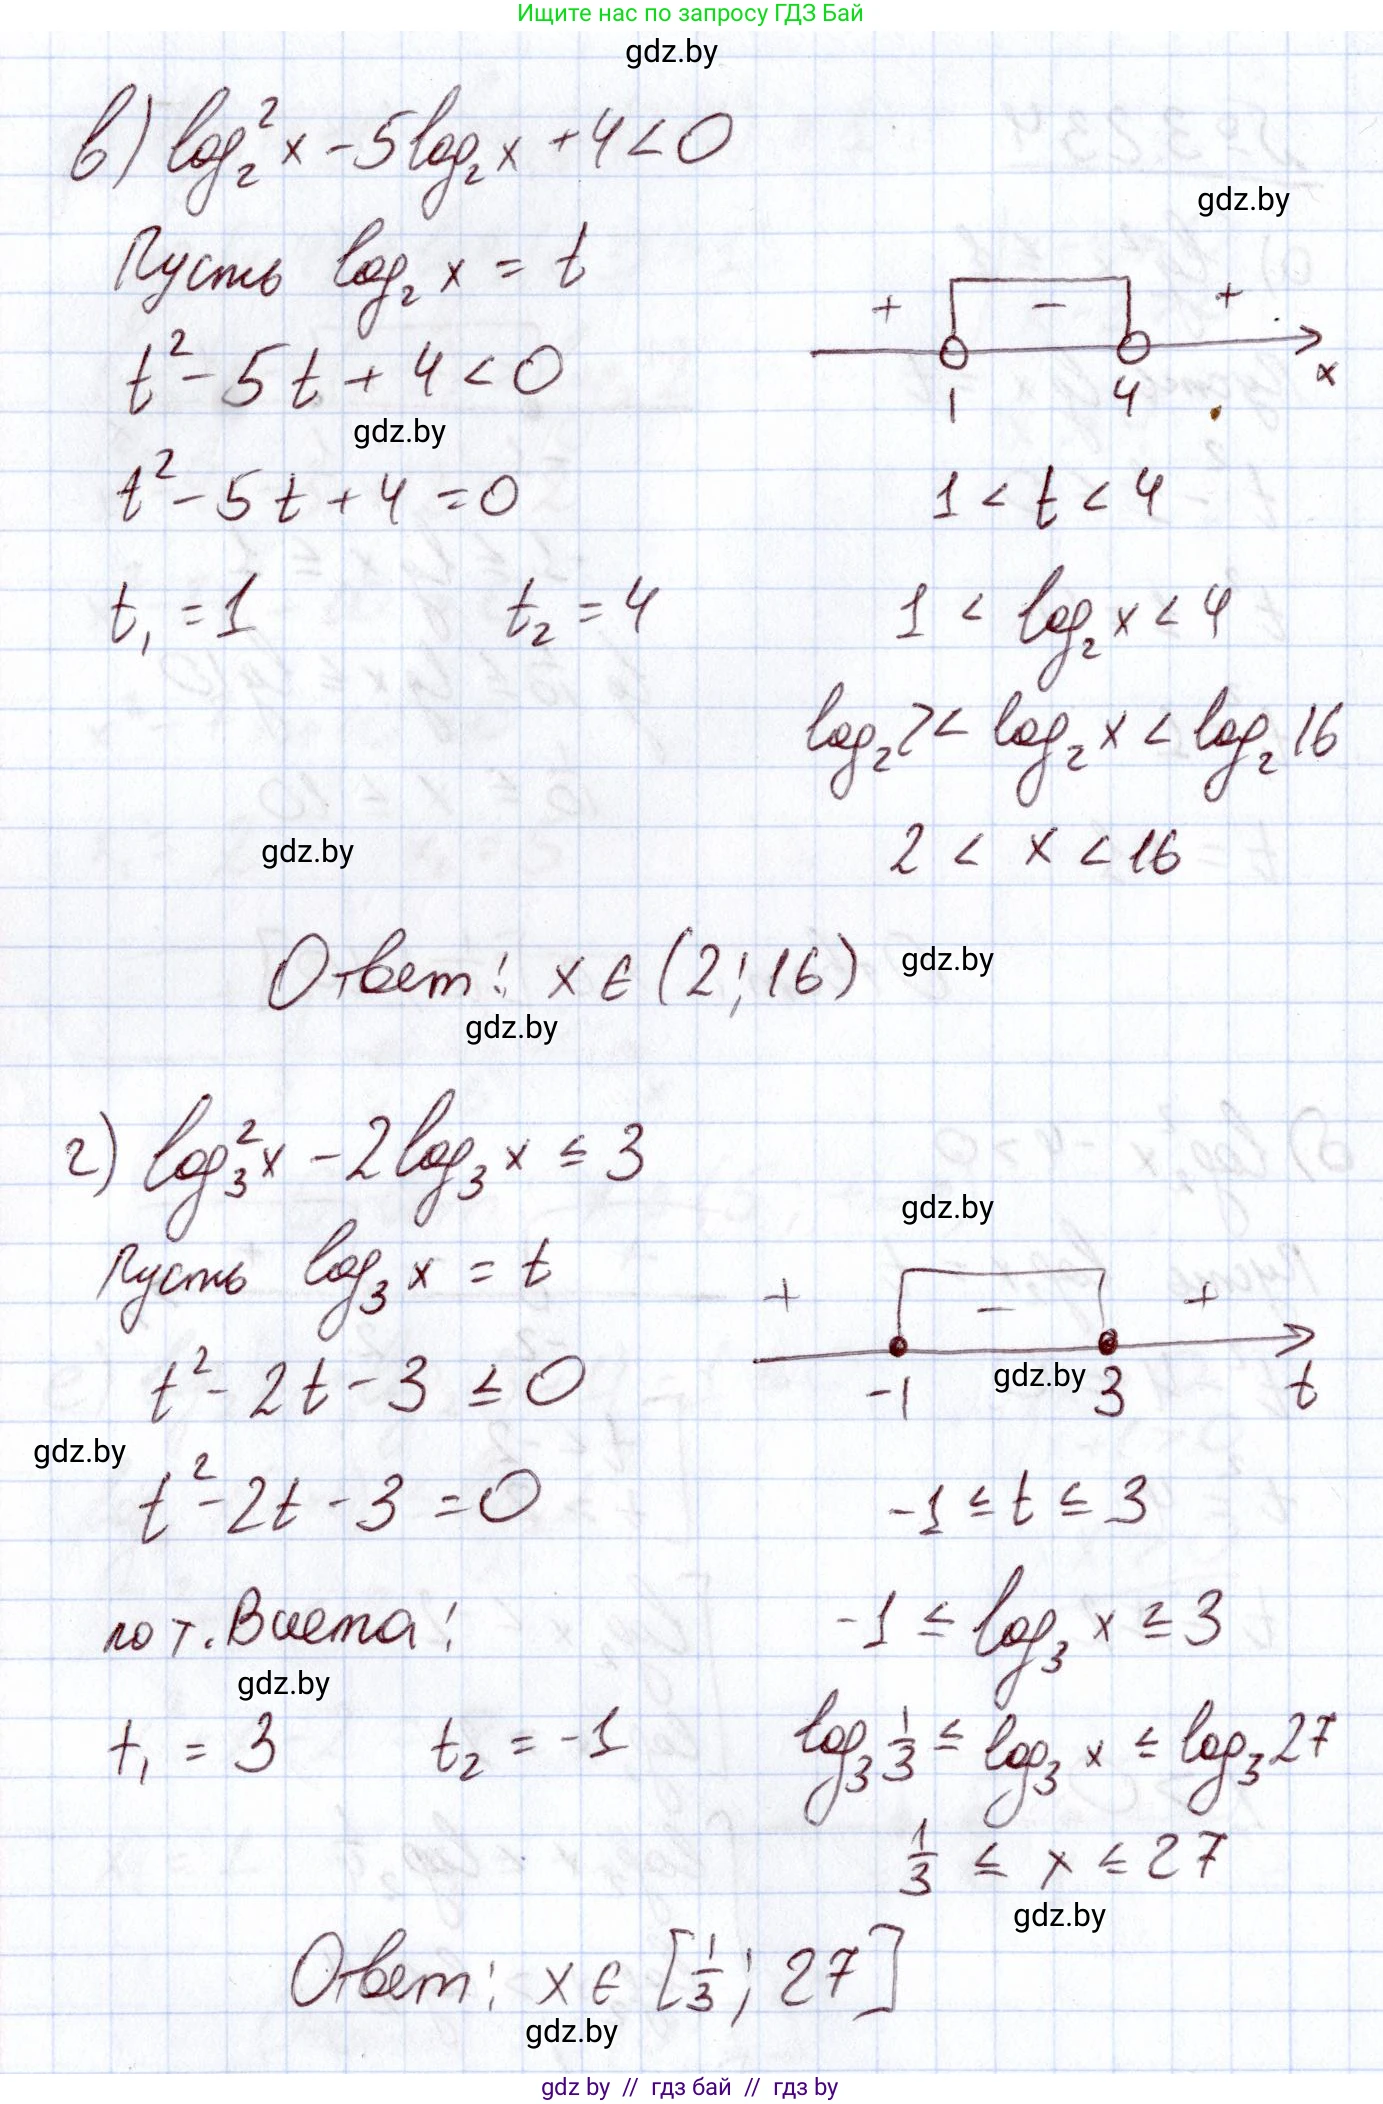 Ищите нас по запросу ГДЗ Бай
gdz.by
в) log₂² x - 5 log₂ x + 4 < 0
gdz.by
Пусть log₂ x = t
t² - 5t + 4 < 0
gdz.by
t² - 5t + 4 = 0
t₁ = 1 t₂ = 4
+ - +
1 4 x
1 < t < 4
1 < log₂ x < 4
log₂ 2 < log₂ x < log₂ 16
2 < x < 16
gdz.by
Ответ: x ∈ (2; 16)
gdz.by
gdz.by
г) log₃² x - 2 log₃ x ≤ 3
gdz.by
Пусть log₃ x = t
t² - 2t - 3 ≤ 0
gdz.by
t² - 2t - 3 = 0
по т. Виета:
gdz.by
t₁ = 3 t₂ = -1
+ - +
gdz.by
-1 3 t
-1 ≤ t ≤ 3
-1 ≤ log₃ x ≥ 3
log₃ 1/3 ≤ log₃ x ≤ log₃ 27
1/3 ≤ x ≤ 27
gdz.by
Ответ: x ∈ [1/3; 27]
gdz.by
gdz by // гдз бай // гдз by